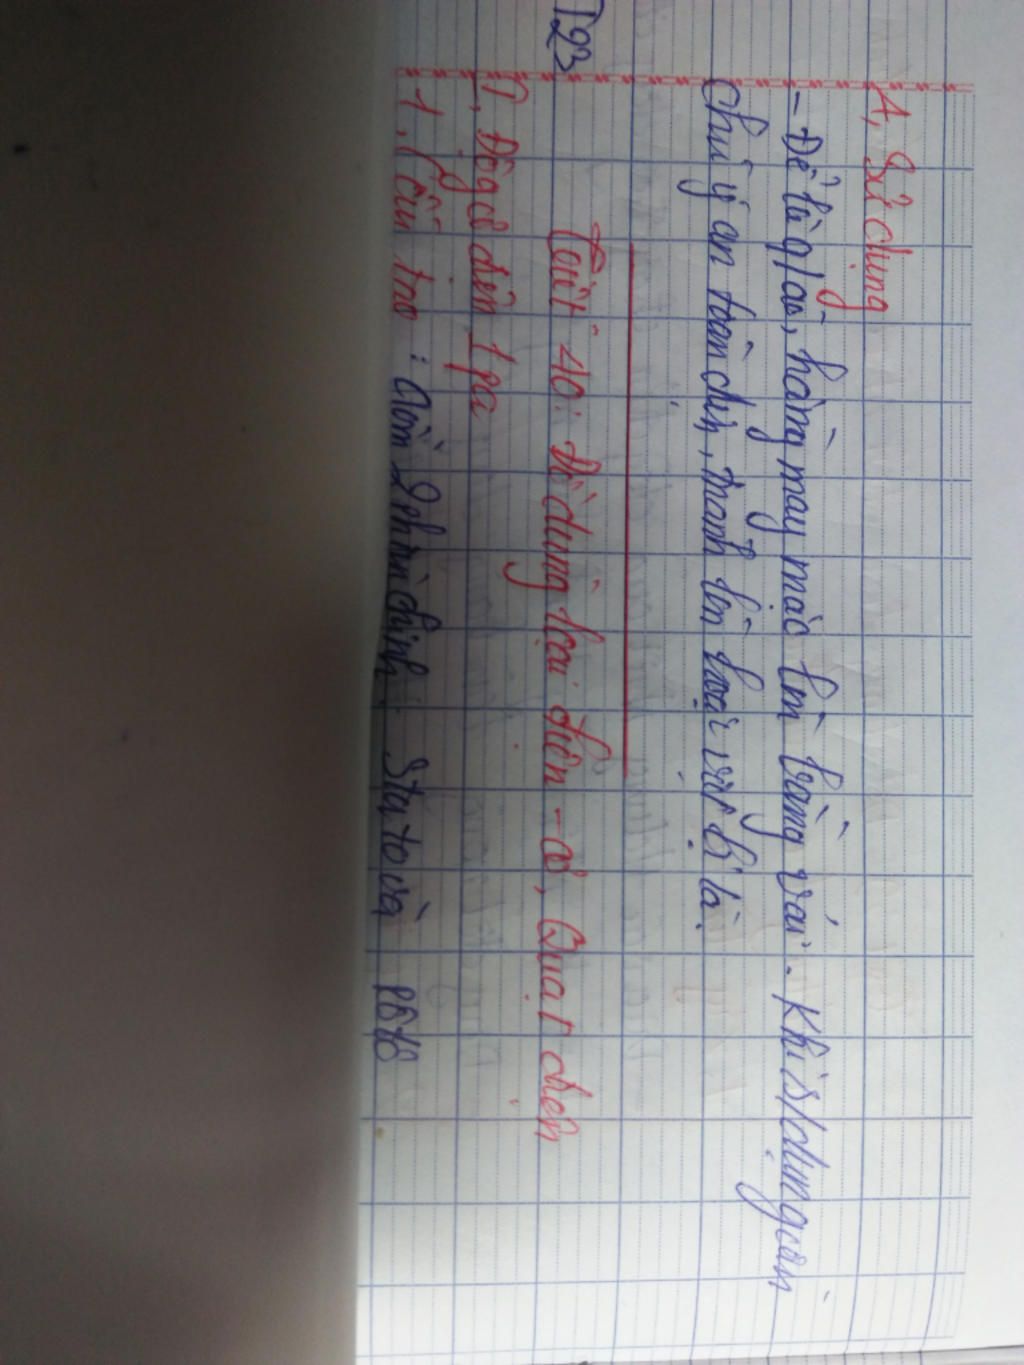 4, Sử dụng
- Để là q/áo, hàng may mặc bằng vải. Khi s/dụng cần
chú ý an toàn điện, tránh làm hoại vật bị là.
T23
Tiết 40: Đồ dùng loại điện - cơ, Quạt điện
I, Động cơ điện 1 pa
1, Cấu tạo: Gồm 2 phần chính: Stato và Rôtô